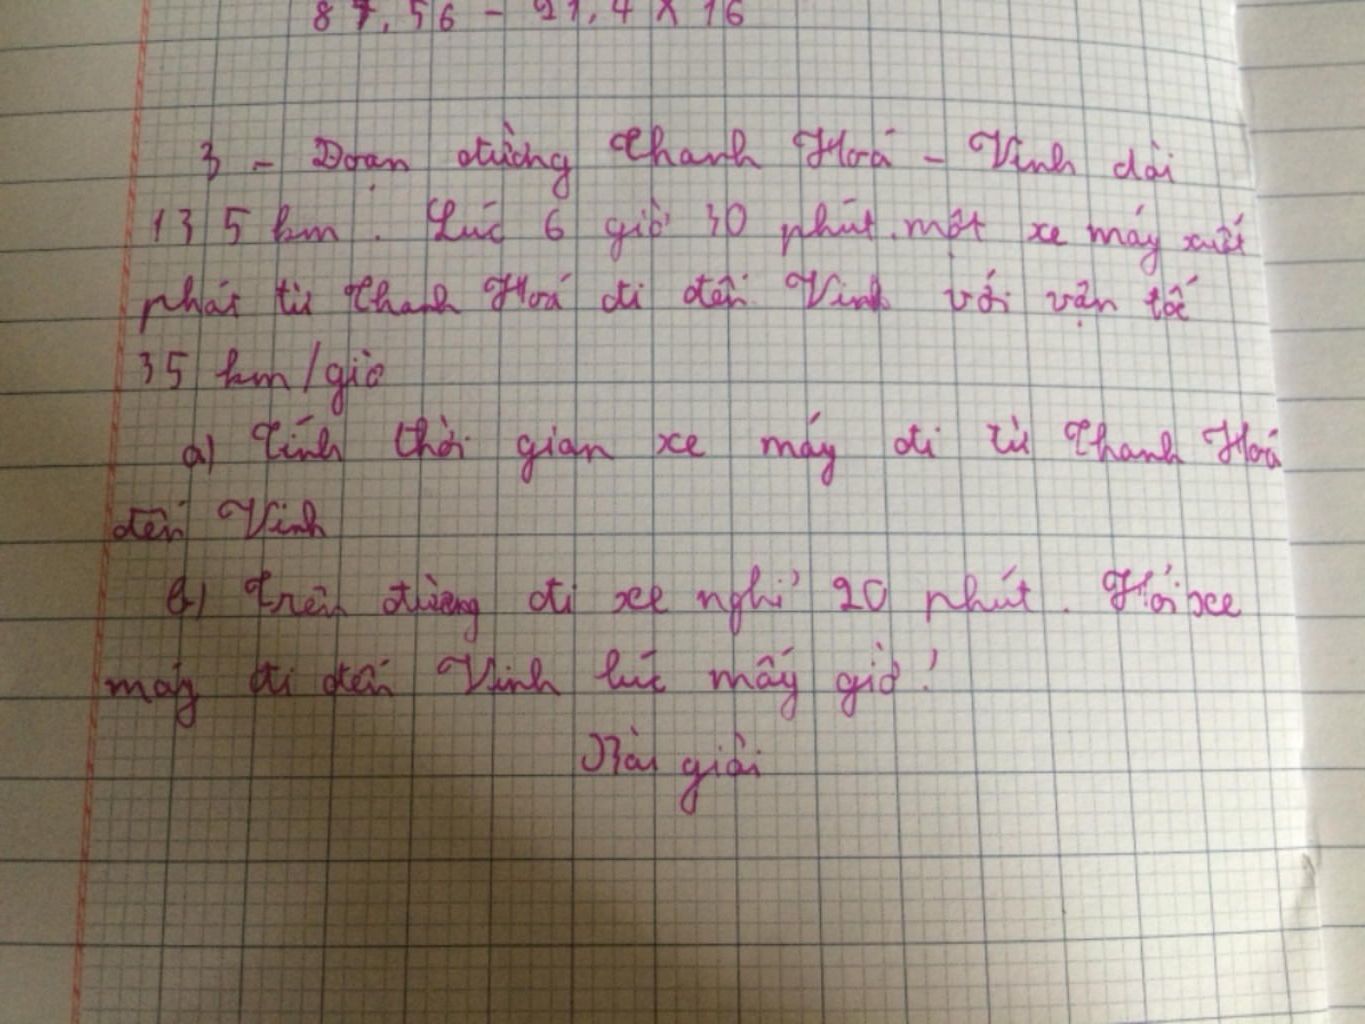 87,56 - 21,4 x 16
3 - Đoạn đường Thanh Hoá - Vinh dài
135 km. Lúc 6 giờ 30 phút một xe máy xuất
phát từ Thanh Hoá đi đến Vinh với vận tốc
35 km/giờ
a) Tính thời gian xe máy đi từ Thanh Hoá
đến Vinh
b) Trên đường đi xe nghỉ 20 phút. Hỏi xe
máy đi đến Vinh lúc mấy giờ!
Bài giải